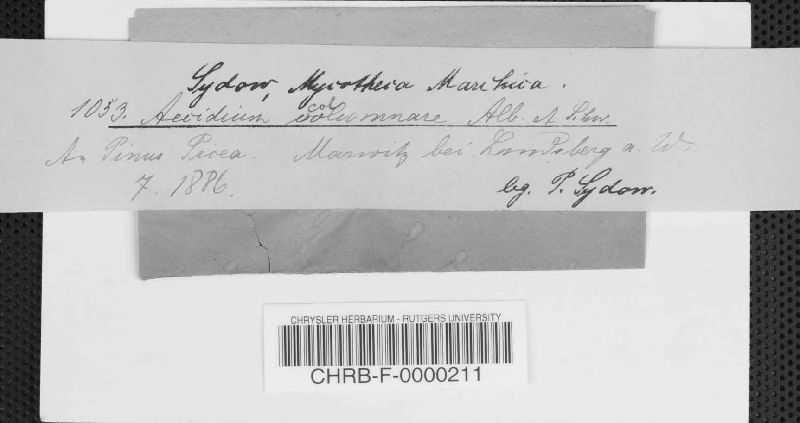 Sydow, Mycotheca Marchica.
1053. Aecidium columnare Alb. et Schw.
An Pinus Picea. Marwitz bei Landsberg a. W.
7. 1886. leg. P. Sydow.
CHRYSLER HERBARIUM - RUTGERS UNIVERSITY
CHRB-F-0000211